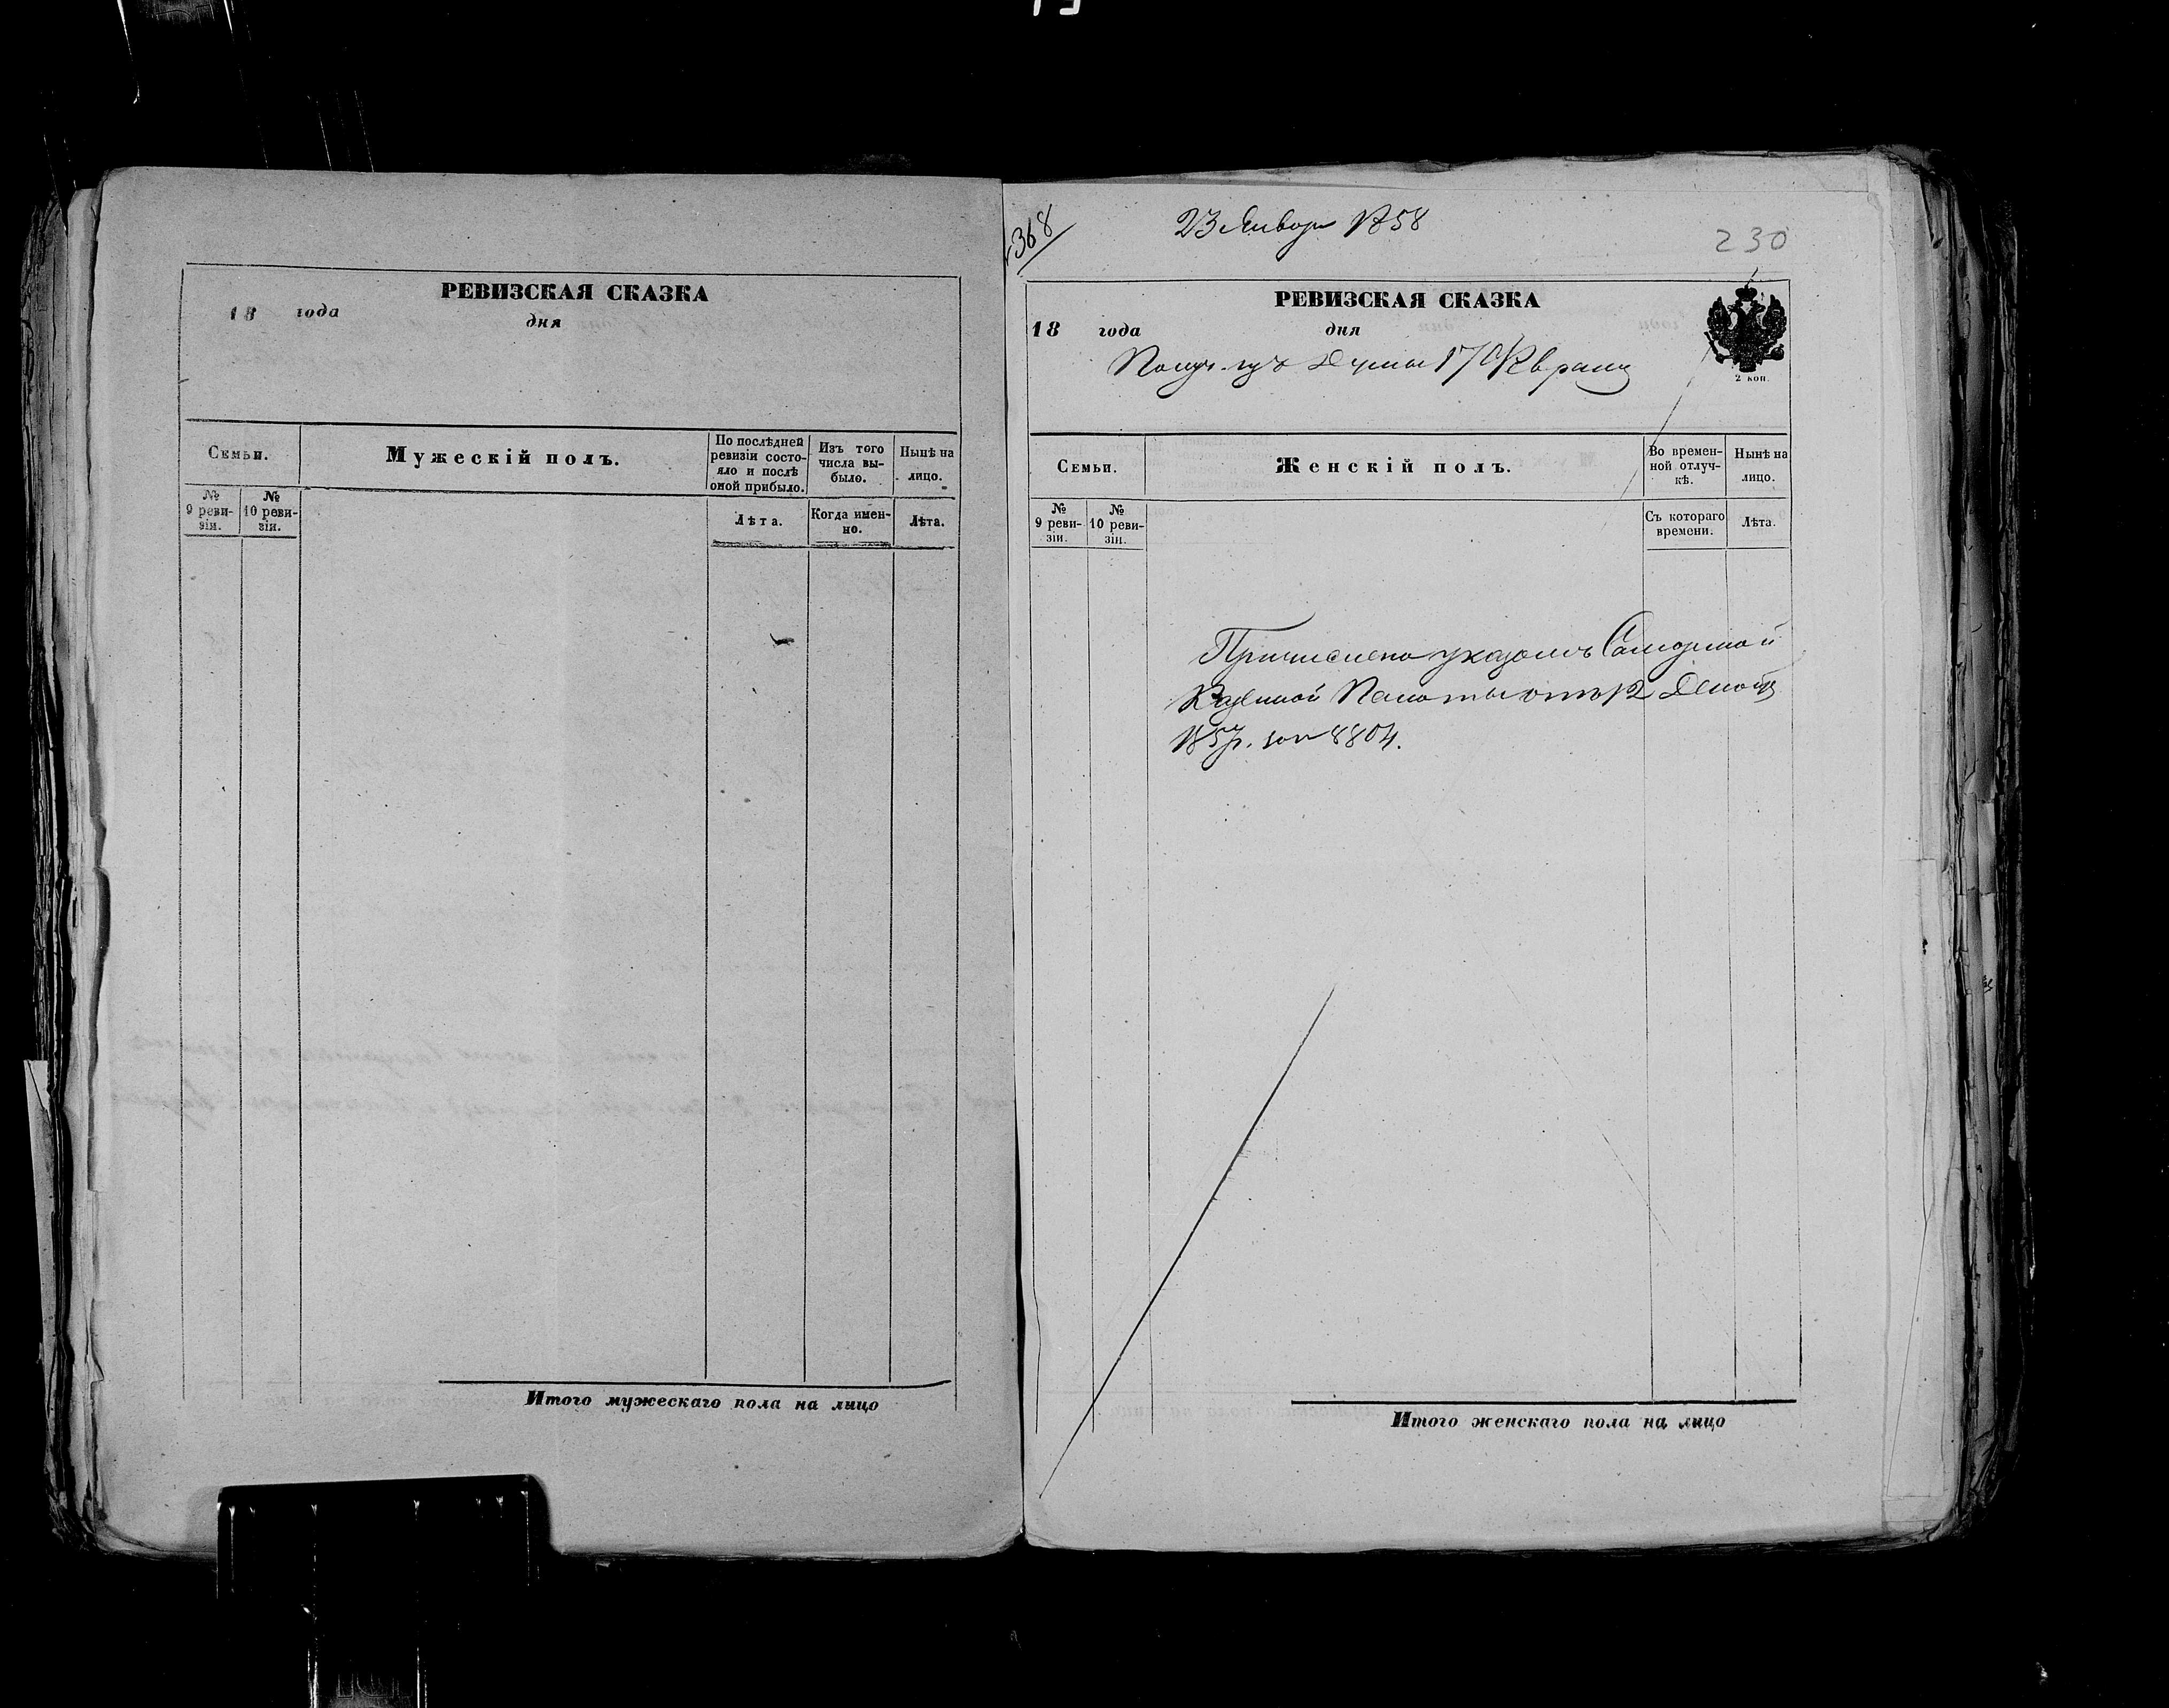 РЕВИЗСКАЯ СКАЗКА
18 года дня
Семьи.
Мужескій полъ.
По послѣдней ревизіи состояло и послѣ оной прибыло.
Изъ того числа выбыло.
Нынѣ на лицо.
№ 9 ревизіи.
№ 10 ревизіи.
Лѣта.
Когда именно.
Лѣта.
Итого мужескаго пола на лицо
368
23 Января 1858
230
РЕВИЗСКАЯ СКАЗКА
18 года дня
2 коп.
Получ. изъ Думы 17 Февраля
Семьи.
Женскій полъ.
Во временной отлучкѣ.
Нынѣ на лицо.
№ 9 ревизіи.
№ 10 ревизіи.
Съ котораго времени.
Лѣта.
Причислена указомъ Самарской
Казенной Палаты отъ 12 Декабря
1857г. за № 8804.
Итого женскаго пола на лицо